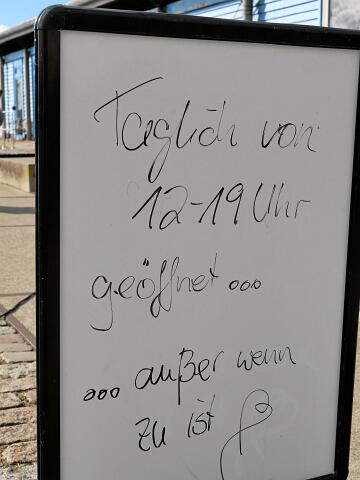 Täglich von
12-19 Uhr
geöffnet ...
... außer wenn
zu ist